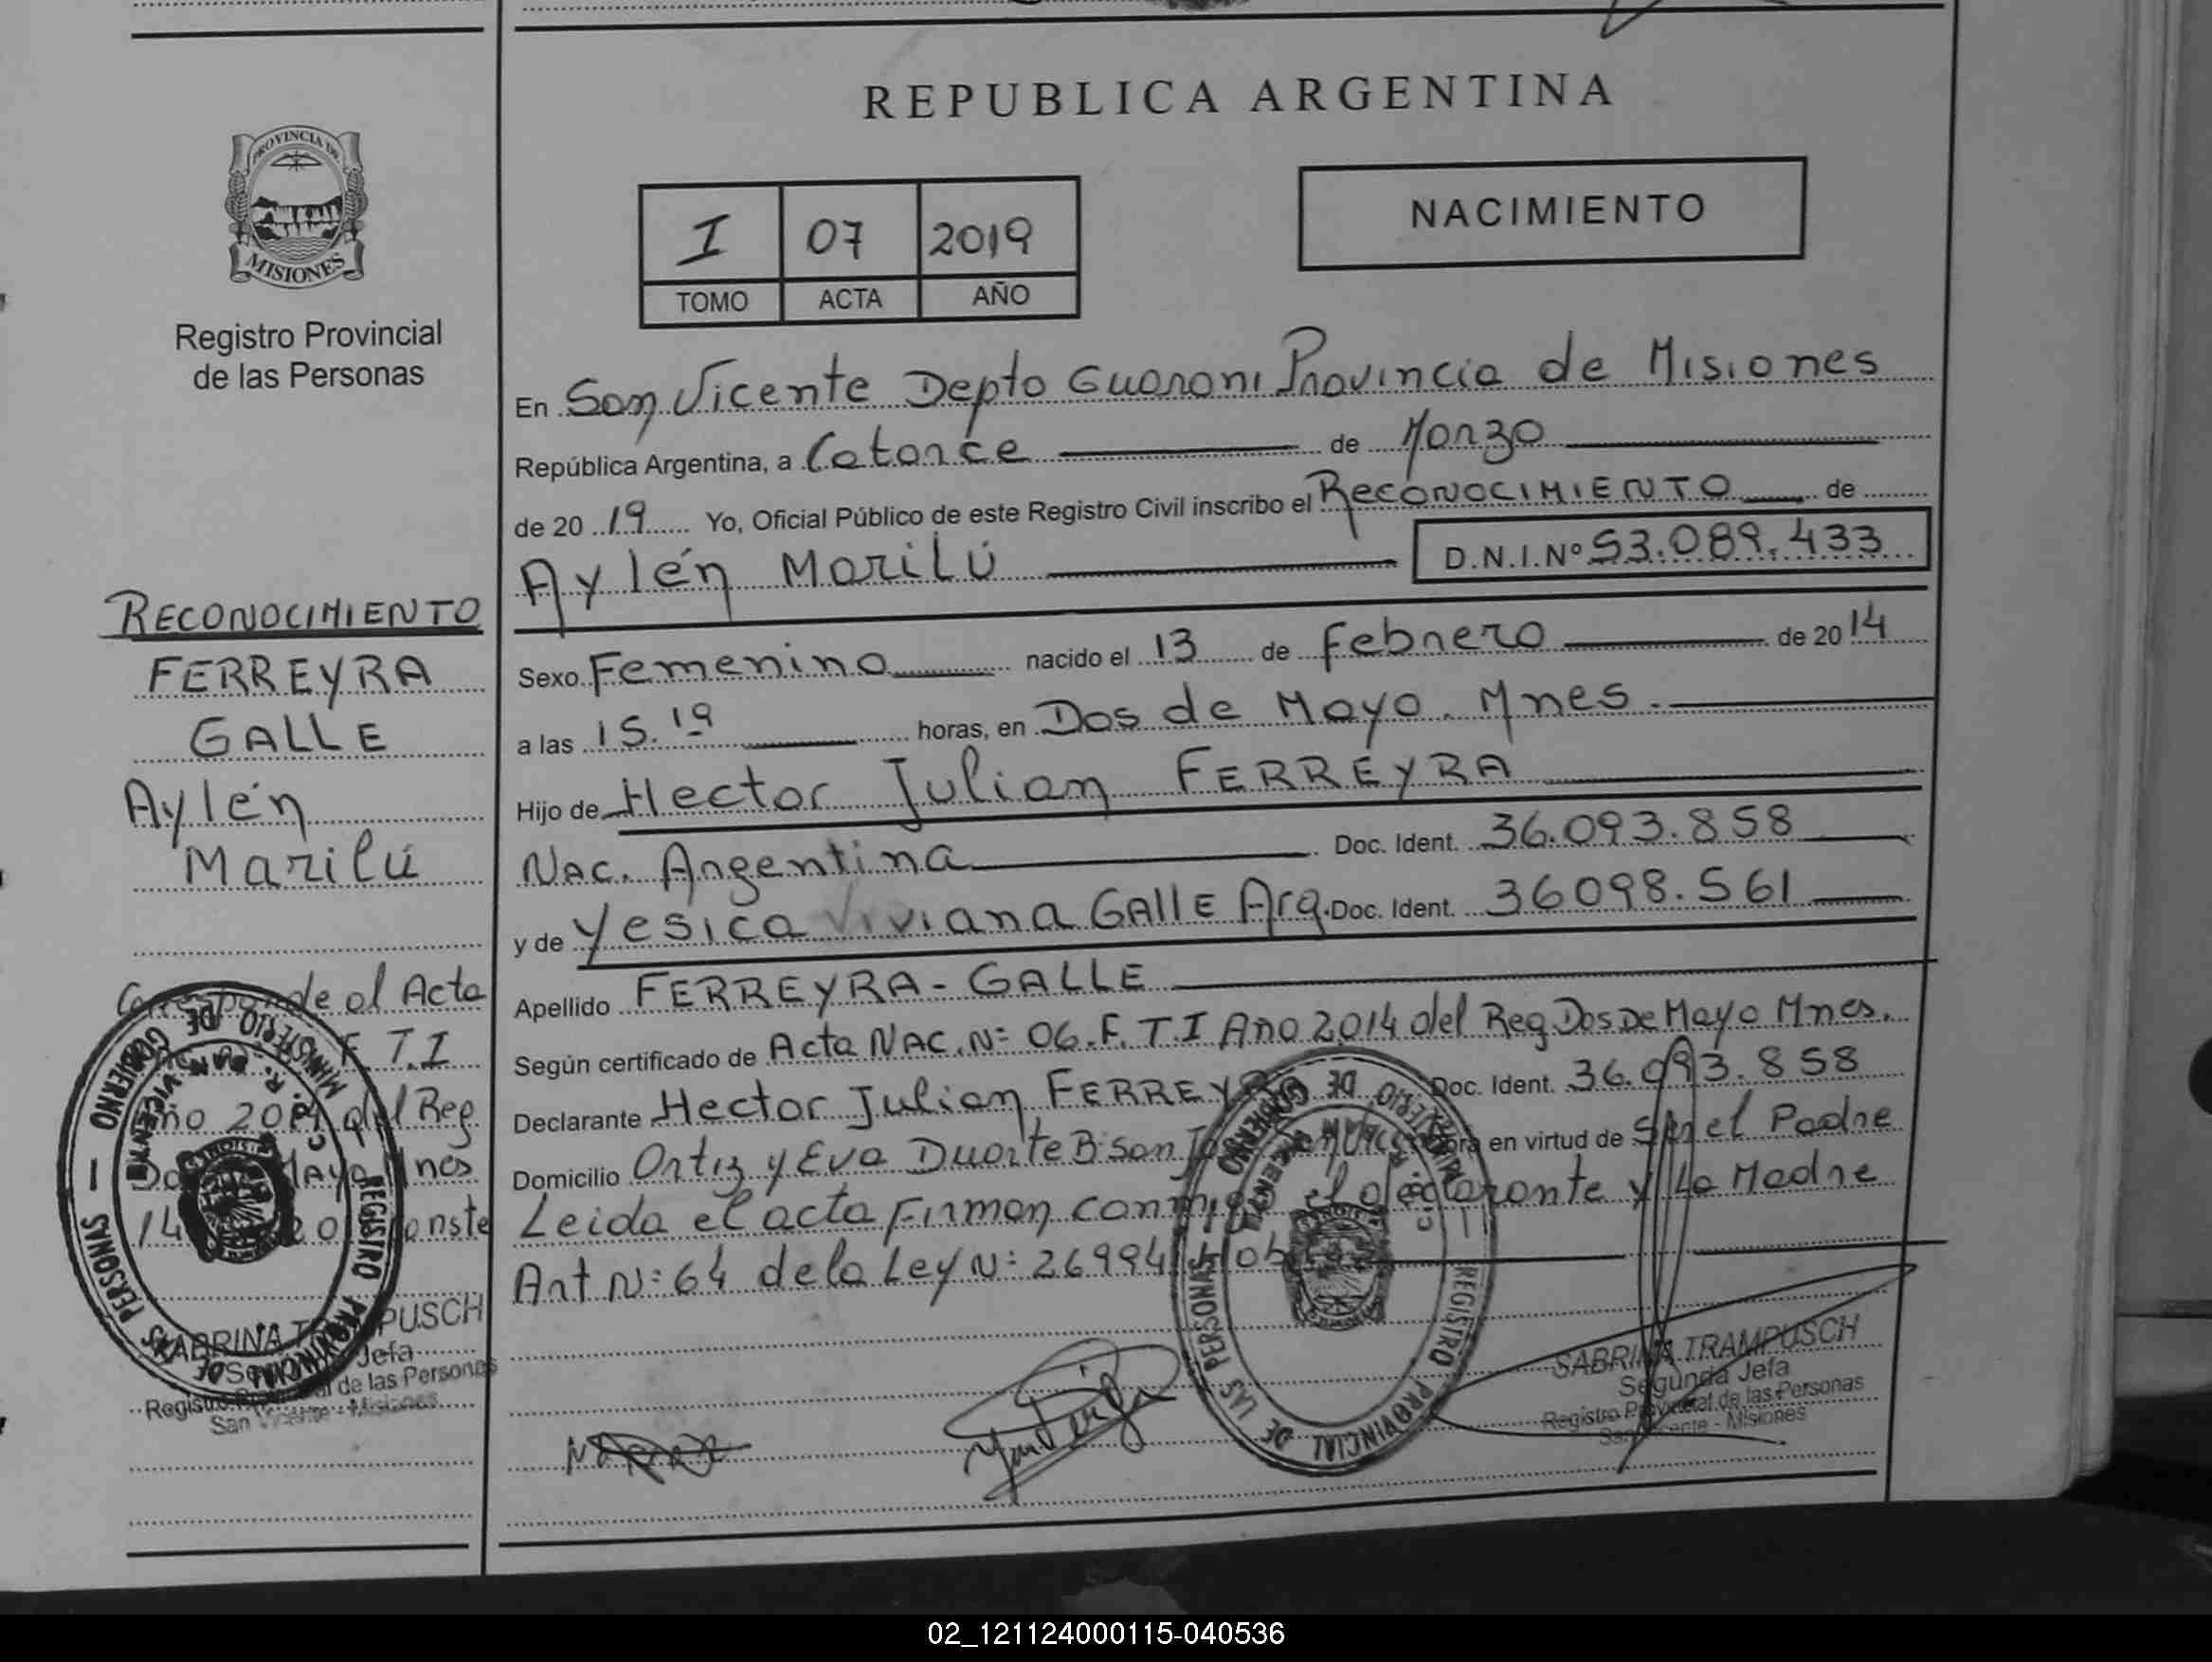 REPUBLICA ARGENTINA
PROVINCIA DE
MISIONES
Registro Provincial
de las Personas
I 07 2019
TOMO ACTA AÑO
NACIMIENTO
En San Vicente Depto Guarani Provincia de Misiones
República Argentina, a Catorce de Marzo
de 2019 Yo, Oficial Público de este Registro Civil inscribo el RECONOCIMIENTO de
Aylén Marilú D.N.I.Nº 53.089.433
Sexo Femenino nacido el 13 de Febrero de 2014
a las 15.19 horas, en Dos de Mayo. Mnes.
Hijo de Hector Julian FERREYRA
Nac. Argentina Doc. Ident. 36.093.858
y de Yesica Viviana GAllE Arg. Doc. Ident. 36098.561
Apellido FERREYRA - GALLE
Según certificado de Acta NAC. Nº 06. F. T.I Año 2014 del Reg Dos De Mayo Mnes.
Declarante Hector Julian FERREYRA Doc. Ident. 36.093.858
Domicilio Ortiz y Eva Duarte Bº San en virtud de Ser el Padre
Leida el acta Firman conmigo el declarante y La Madre
Art Nº 64 de la Ley Nº 26994
RECONOCIMIENTO
FERREYRA
GALLE
Aylén
Marilú
Corresponde al Acta
F. T.I
Año 2014 del Reg
Dos Mayo Mnes
14 onste
MINISTERIO DE GOBIERNO
REGISTRO PROVINCIAL DE LAS PERSONAS
C. R. SAN VICENTE
SABRINA TRAMPUSCH
Segunda Jefa
Registro Provincial de las Personas
San Vicente - Misiones
MINISTERIO DE GOBIERNO
REGISTRO PROVINCIAL DE LAS PERSONAS
C. R. SAN VICENTE
SABRINA TRAMPUSCH
Segunda Jefa
Registro Provincial de las Personas
San Vicente - Misiones
02_121124000115-040536